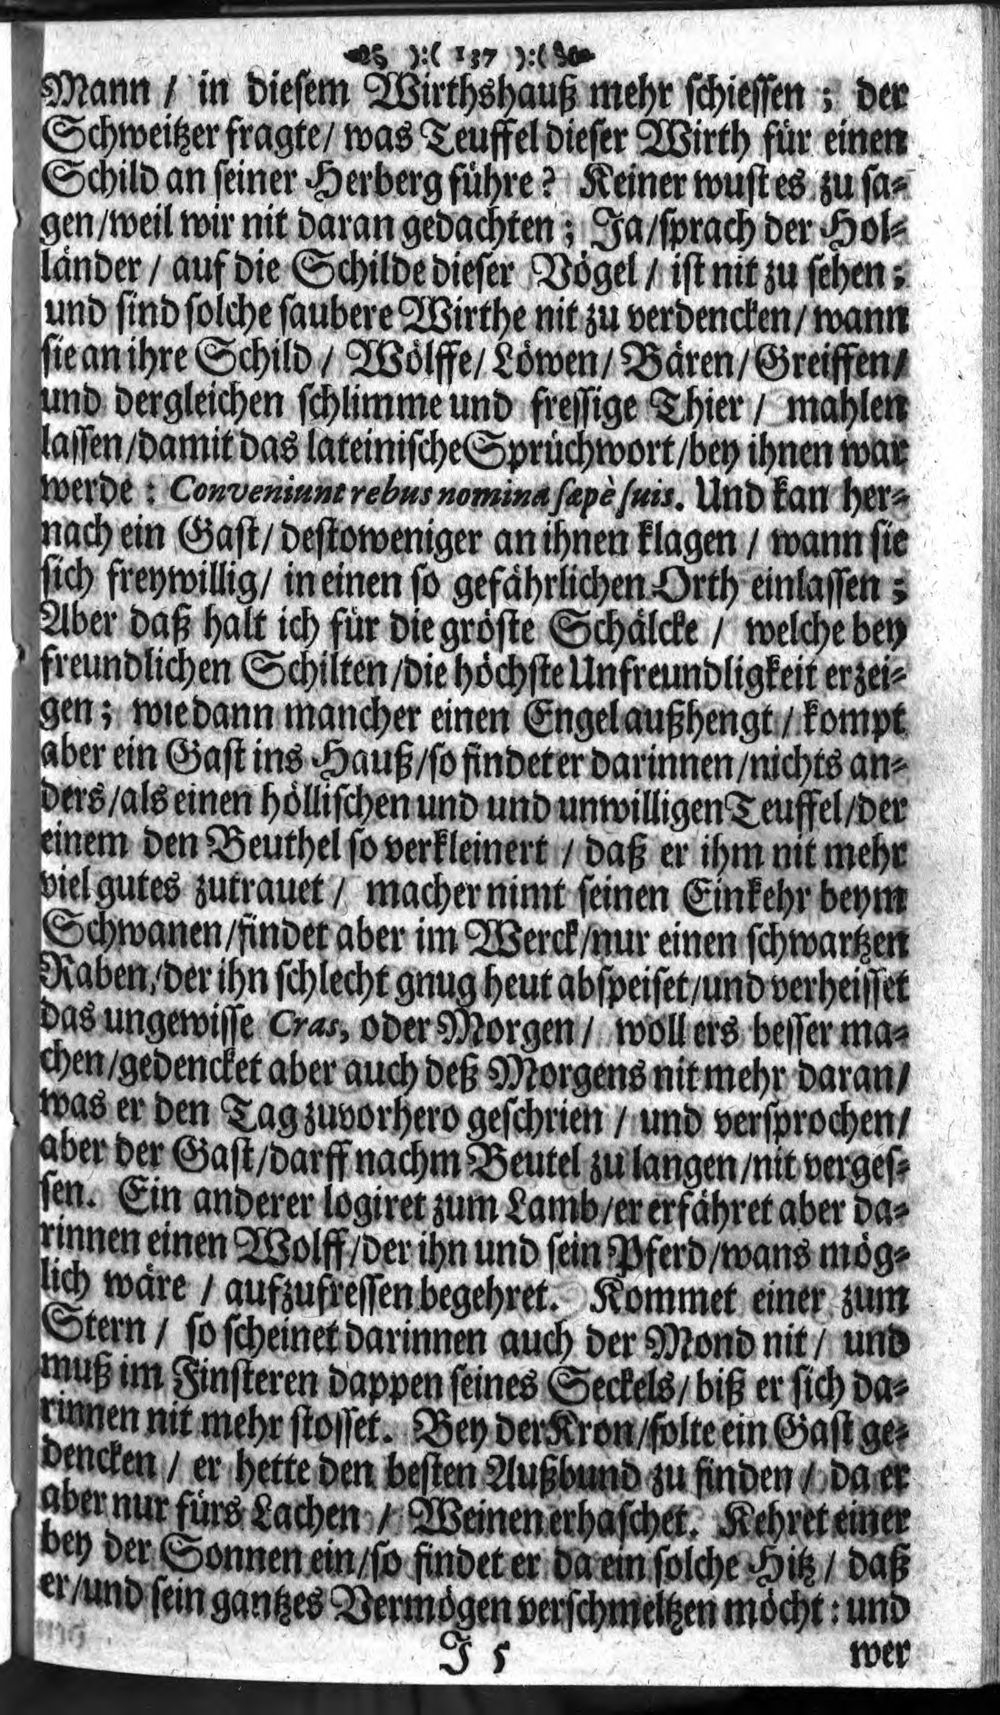 ):( 137 ):(
Mann / in diesem Wirthshauß mehr schiessen ; der
Schweitzer fragte/ was Teuffel dieser Wirth für einen
Schild an seiner Herberg führe ? Keiner wust es zu sa-
gen/weil wir nit daran gedachten ; Ja/sprach der Hol-
länder / auf die Schilde dieser Vögel / ist nit zu sehen ;
und sind solche saubere Wirthe nit zu verdencken/ wann
sie an ihre Schild / Wölffe/ Löwen/ Bären/ Greiffen/
und dergleichen schlimme und fressige Thier / mahlen
lassen/damit das lateinische Sprüchwort/bey ihnen war
werde : Conveniunt rebus nomina sæpè suis. Und kan her-
nach ein Gast/ destoweniger an ihnen klagen / wann sie
sich freywillig/ in einen so gefährlichen Orth einlassen ;
Aber daß halt ich für die gröste Schälcke / welche bey
freundlichen Schilten/die höchste Unfreundligkeit erzei-
gen ; wie dann mancher einen Engel außhengt / kompt
aber ein Gast ins Hauß/so findet er darinnen/nichts an-
ders/als einen höllischen und und unwilligen Teuffel/der
einem den Beuthel so verkleinert / daß er ihm nit mehr
viel gutes zutrauet / macher nimt seinen Einkehr beym
Schwanen/findet aber im Werck/nur einen schwartzen
Raben/der ihn schlecht gnug heut abspeiset/und verheisset
das ungewisse Cras, oder Morgen / woll ers besser ma-
chen/gedencket aber auch deß Morgens nit mehr daran/
was er den Tag zuvorhero geschrien / und versprochen/
aber der Gast/darff nachm Beutel zu langen/nit verges-
sen. Ein anderer logiret zum Lamb/er erfähret aber da-
rinnen einen Wolff/der ihn und sein Pferd/wans mög-
lich wäre / aufzufressen begehret. Kommet einer zum
Stern / so scheinet darinnen auch der Mond nit / und
muß im Finsteren dappen seines Seckels/ biß er sich da-
rinnen nit mehr stosset. Bey der Kron/solte ein Gast ge-
dencken / er hette den besten Außbund zu finden / da er
aber nur fürs Lachen / Weinen erhaschet. Kehret einer
bey der Sonnen ein/so findet er da ein solche Hitz / daß
er/und sein gantzes Vermögen verschmeltzen möcht : und
J 5 wer